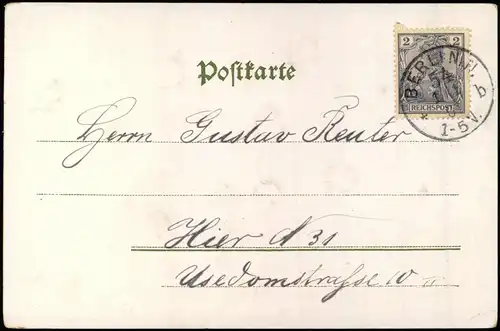 Postkarte
2 2
REICHSPOST
BERLIN, N.
54
1-5V.
b
Herrn Gustav Reuter
Hier N 31
Usedomstraße 10 II